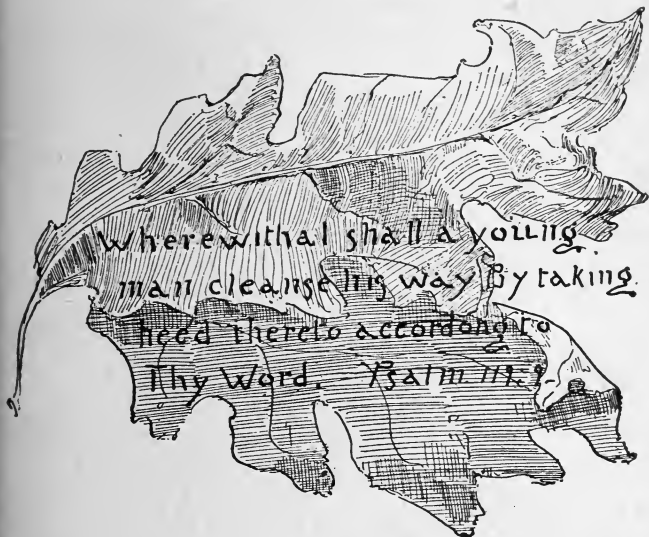 Wherewithal shall a young
man cleanse his way By taking
heed thereto accordong to
Thy Word. Psalm 119:9